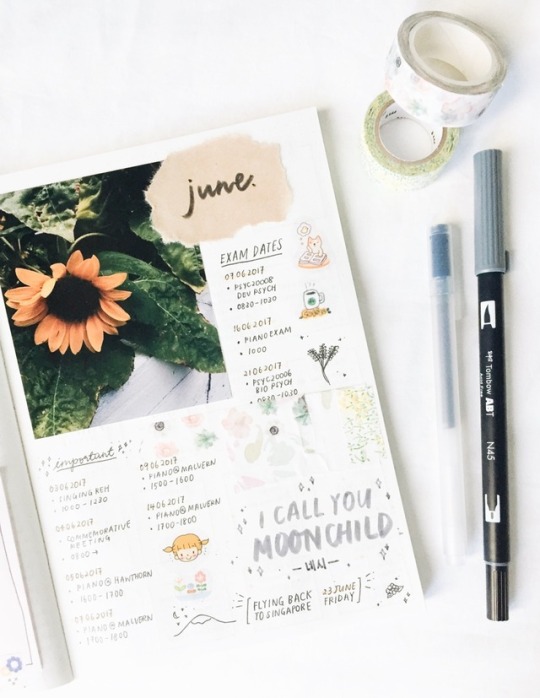 june.
EXAM DATES
07.06.2017
• PSYC20008
DEV PSYCH
• 0830-1030
16.06.2017
• PIANO EXAM
• 1000
21.06.2017
• PSYC20006
BIO PSYCH
• 0830-1030
important
03.06.2017
• SINGING REH
• 1000-1230
04.06.2017
• COMMEMORATIVE
MEETING
• 0800 →
05.06.2017
• PIANO@HAWTHORN
• 1600-1700
07.06.2017
• PIANO@MALVERN
• 1700-1800
09.06.2017
• PIANO@MALVERN
• 1500-1600
14.06.2017
• PIANO@MALVERN
• 1700-1800
I CALL YOU
MOONCHILD
[FLYING BACK
TO SINGAPORE
23 JUNE
FRIDAY]
Tombow ABT
N45